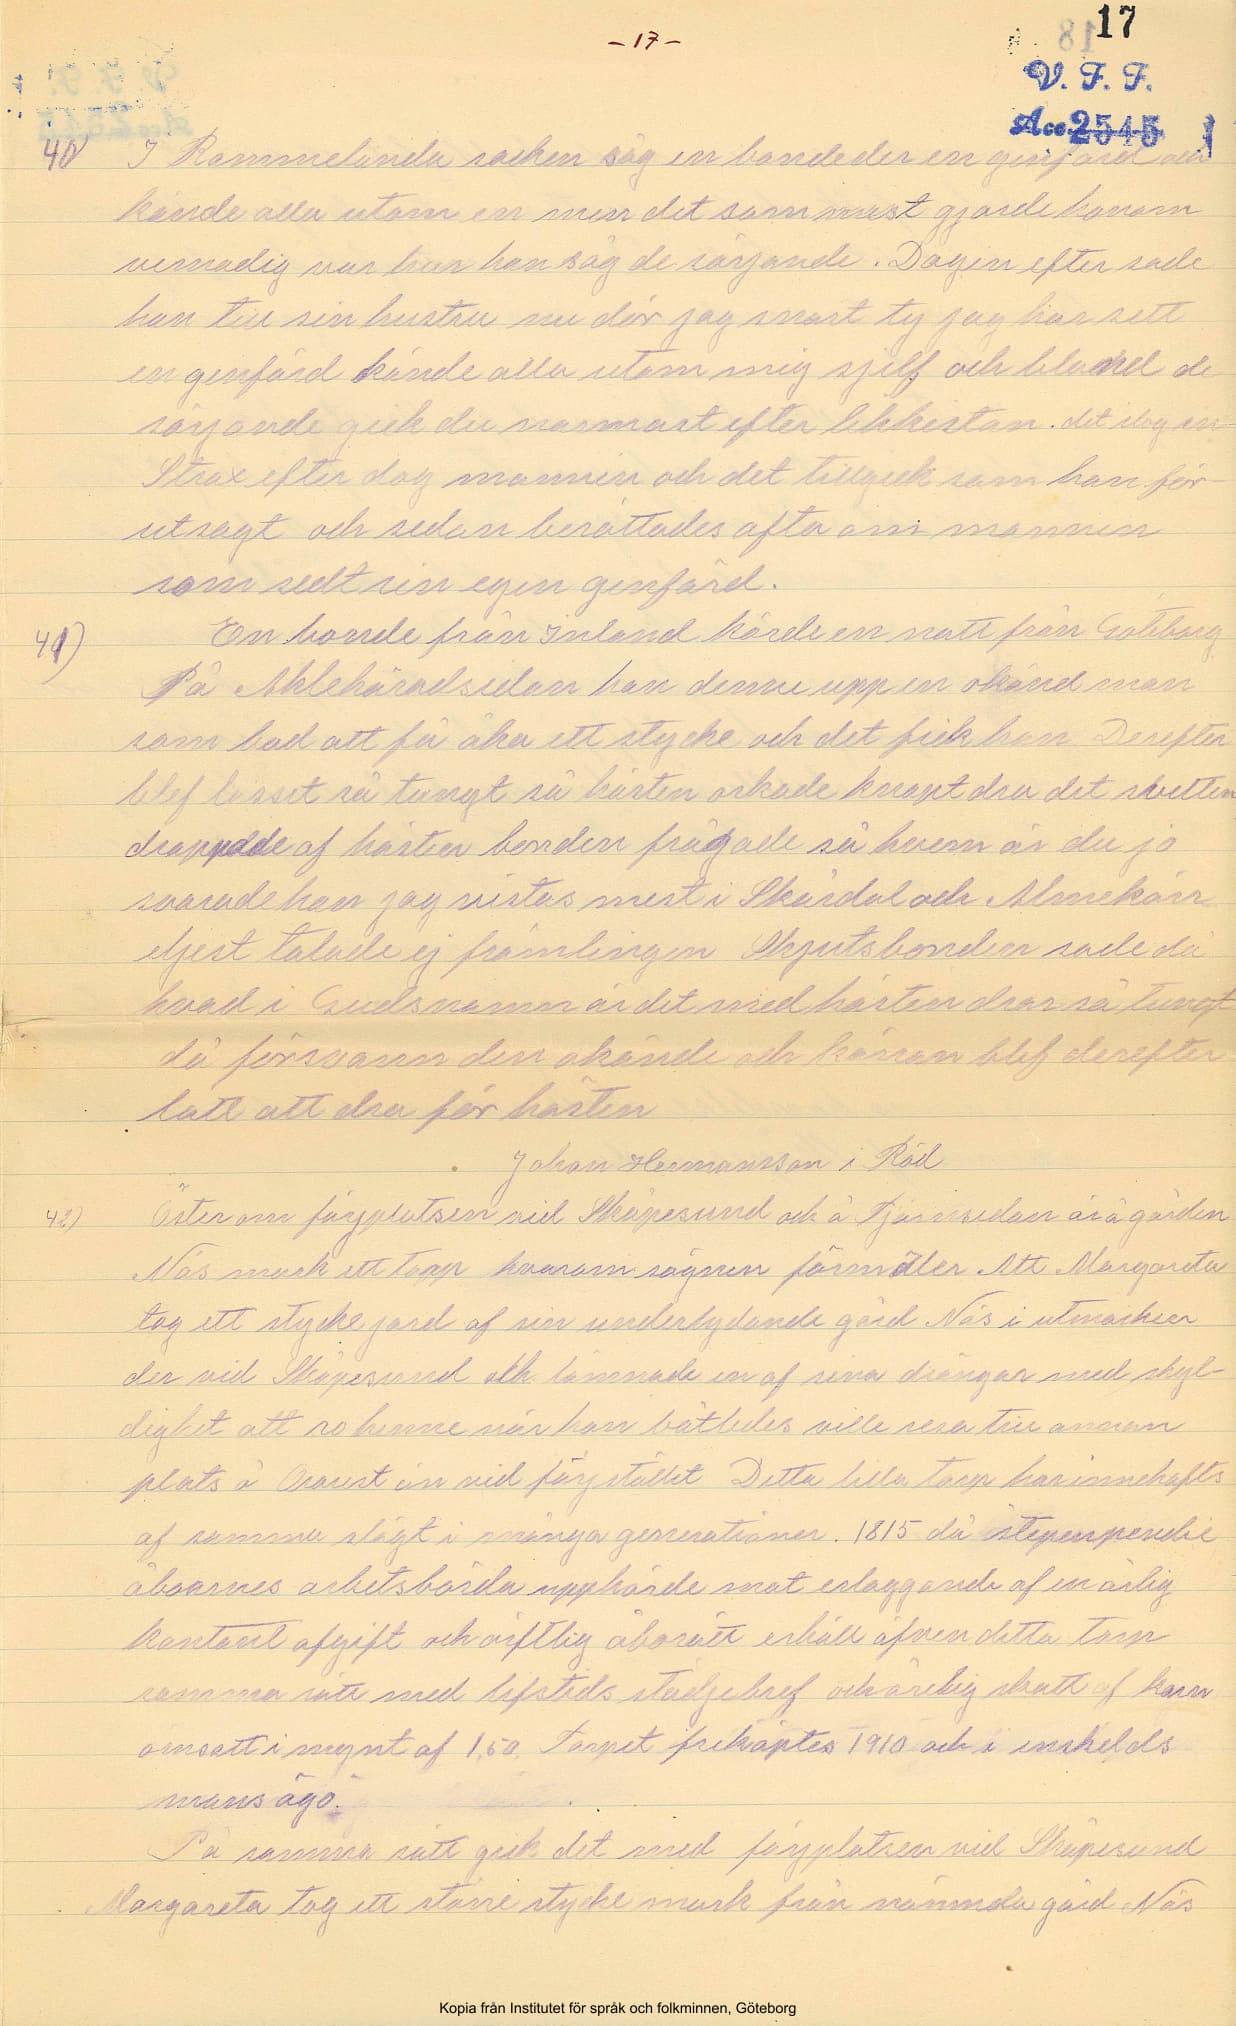 - 17 -
17
V. F. F.
Acc. 2545
40) I Rommelanda socken såg en bonde der en genfärd och
kände alla utom en men det som mest gjorde honom
vemodig var hur han såg de sörjande. Dagen efter sade
han till sin hustru nu dör jag snart ty jag har sett
en genfärd kände alla utom mig sjelf och bland de
sörjande gick du närmast efter likkistan. det slog in
Strax efter dog mannen och det tillgick som han för-
utsagt och sedan berättades ofta om mannen
som sedt sin egen genfärd.
41) En bonde från Inland körde en natt från Göteborg
På Ahlehäradsidan han denne upp en okänd man
som bad att få åka ett stycke och det fick han Derefter
blef lasset så tungt så hästen orkade knapt dra det svetten
droppade af hästen bonden frågade så hvem är du jo
svarade han jag vistas mest i Skårdal och Almekärr
eljest talade ej främlingen Skjutsbonden sade då
hvad i Gudsnamn är det med hästen drar så tungt
då försvann den okände och kärran blef derefter
latt att dra för hästen
Johan Hermansson i Röd
42) Öster om färjplatsen vid Skåpesund och å Tjörnsidan är å gården
Näs mark ett torp hvarom sägnen förmäler Att Margareta
tog ett stycke jord af sin underlydande gård Näs i utmarken
der vid Skåpesund och lämnade en af sina drängar med skyl-
dighet att ro henne när hon båtledes ville resa till annan
plats å Orust än vid färjstället Detta lilla torp har innehafts
af samma slägt i många generationer. 1815 då
åboarnes arbetsbörda upphörde mot erläggande af en årlig
kontant afgift och ärftlig åborätt erhöll äfven detta torp
samma rätt med lifstids städjebref och årlig skatt af korn
omsatt i mynt af 1,50, Torpet friköptes 1910 och i enskilds
mans ägo.
På samma sätt gick det med färjplatsen vid Skåpesund
Margareta tog ett större stycke mark från nämnda gård Näs
Kopia från Institutet för språk och folkminnen, Göteborg